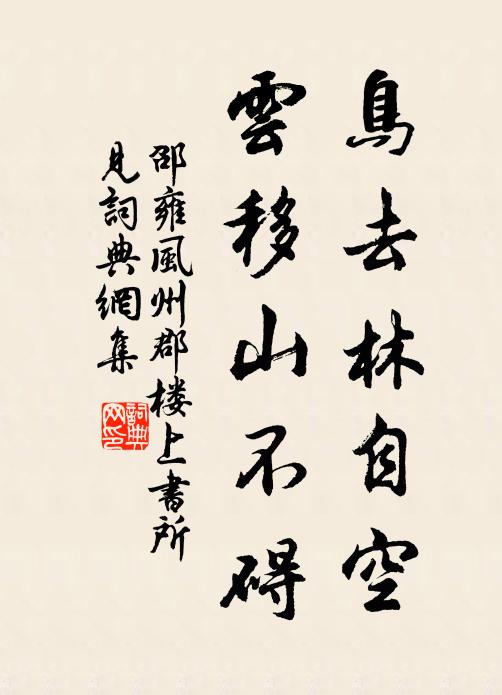 鳥去林自空
雲移山不碍
邵雍風州郡楼上書所
见詞典網集
詞典网印